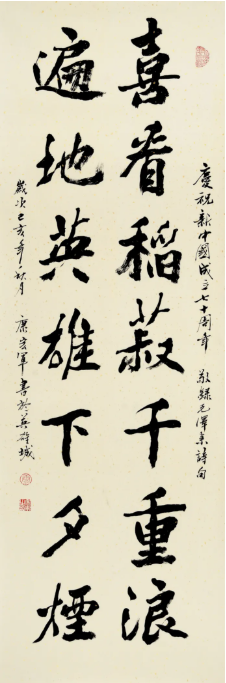 慶祝新中國成立七十周年 敬錄毛澤東詩句
喜看稻菽千重浪
遍地英雄下夕煙
歲次己亥年秋月 康宏軍書於英雄城